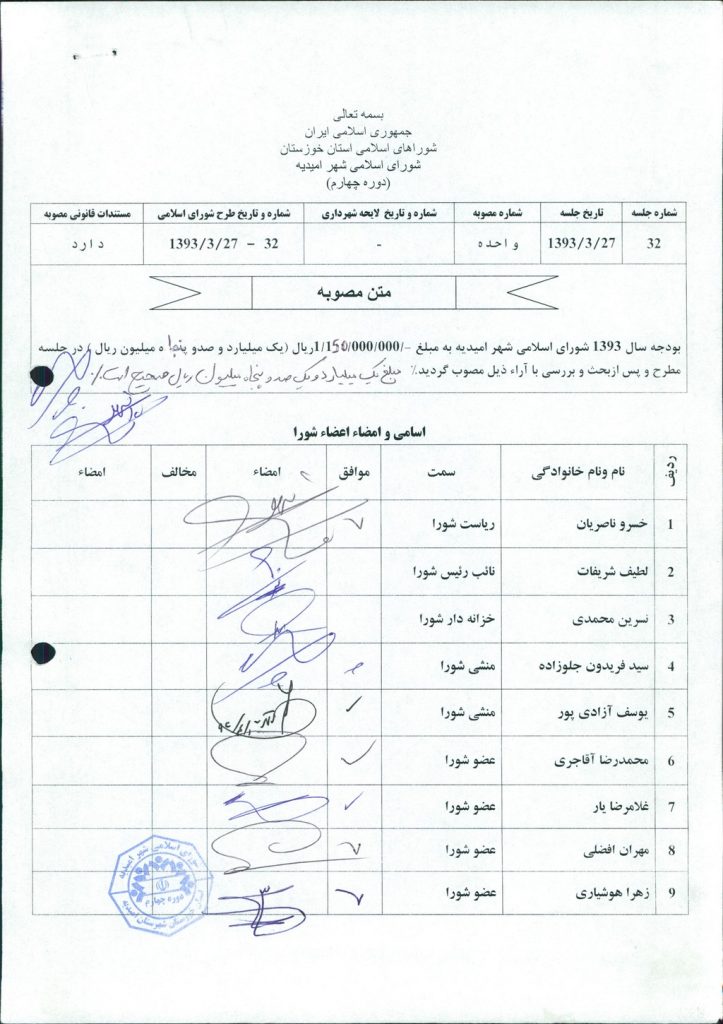 بسمه تعالی
جمهوری اسلامی ایران
شوراهای اسلامی استان خوزستان
شورای اسلامی شهر امیدیه
(دوره چهارم)
شماره جلسه تاریخ جلسه شماره مصوبه شماره و تاریخ لایحه شهرداری شماره و تاریخ طرح شورای اسلامی مستندات قانونی مصوبه
32 1393/3/27 واحده - 32 – 1393/3/27 دارد
متن مصوبه
بودجه سال 1393 شورای اسلامی شهر امیدیه به مبلغ -/1/150/000/000ریال (یک میلیارد و صدو پنجاه میلیون ریال) در جلسه
مطرح و پس ازبحث و بررسی با آراء ذیل مصوب گردید.٪ مبلغ یک میلیارد و یکصد و پنجاه میلیون ریال صحیح است.٪
اسامی و امضاء اعضاء شورا
ردیف نام ونام خانوادگی سمت موافق امضاء مخالف امضاء
1 خسرو ناصریان ریاست شورا
2 لطیف شریفات نائب رئیس شورا
3 نسرین محمدی خزانه دار شورا
4 سید فریدون جلوزاده منشی شورا
5 یوسف آزادی پور منشی شورا
6 محمدرضا آقاجری عضو شورا
7 غلامرضا یار عضو شورا
8 مهران افضلی عضو شورا
9 زهرا هوشیاری عضو شورا
شورای اسلامی شهر امیدیه
دوره چهارم
استان خوزستان شهرستان امیدیه